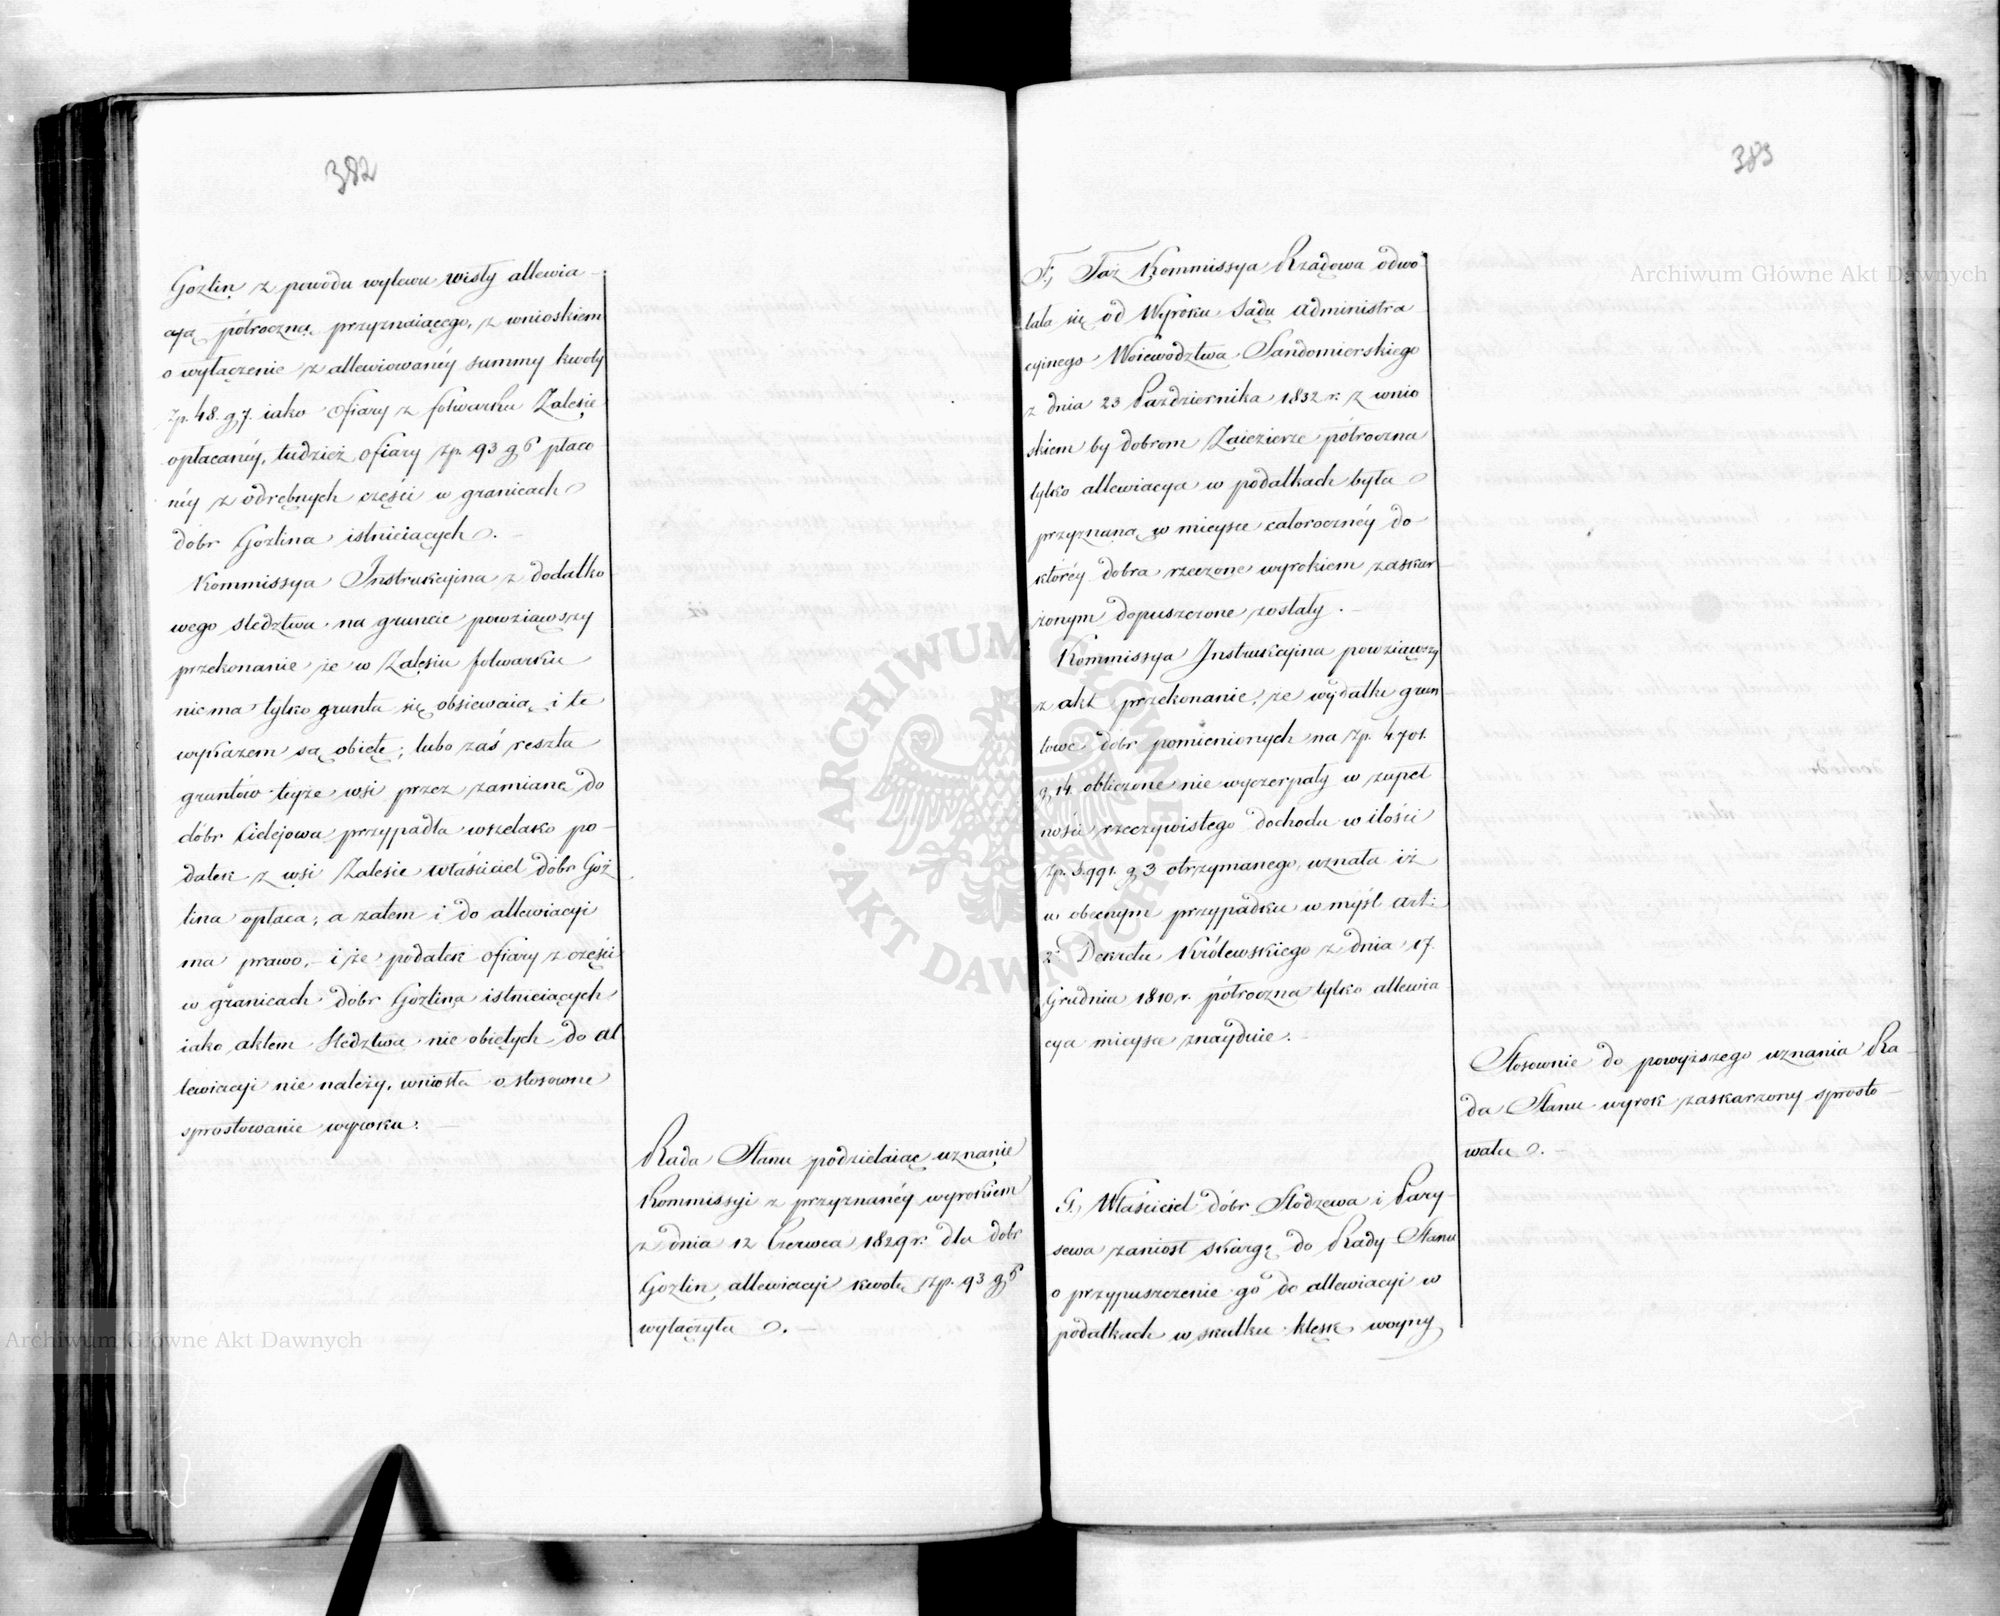 382
Gozlin z powodu wylewu wisły allewia-
cyą półroczną przyznaiącego, z wnioskiem
o wyłączenie z allewiowanéy summy kwoty
zp. 48. g 7. iako ofiary z folwarku Zalesie
opłacanéy, tudzież ofiary zp. 93 g 6 płaco
néy z odrębnych części w granicach
dóbr Gozlina istnieiących. -
Kommissya Instrukcyina z dodatko
wego sledztwa na gruncie powziąwszy
przekonanie że w Zalesiu folwarku
niema tylko grunta się obsiewaią i te
wykazem są obięte; lubo zaś reszta
gruntów teyże wsi przez zamianę do
dóbr Cielejowa przypadła wszelako po-
datek z wsi Zalesie właściciel dóbr Goź
lina opłaca; a zatem i do allewiacyi
ma prawo, - i że podatek ofiary z części
w granicach dóbr Gozlina istnieiących
iako aktem sledztwa nie obiętych do al
lewiacyi nie należy, wniosła o stosowne
sprostowanie wyroku. -
Rada Stanu podzielaiąc uznanie
Kommissyi z przyznanéy wyrokiem
z dnia 12 Czerwca 1829 r. dla dóbr
Gozlin allewiacyi kwotę zp. 93 g 6
wyłączyła. -
383
F, Taż Kommissya Rządowa odwo-
łała się od Wyroku Sądu Administra
cyinego Woiewództwa Sandomierskiego
z dnia 23 Października 1832 r. z wnio
skiem by dobrom Zaiezierze półroczna
tylko allewiacya w podatkach była
przyznaną w mieysce całorocznéy do
któréy dobra rzeczone wyrokiem zaskar-
żonym dopuszczone zostały. -
Kommissya Instrukcyina powziąwszy
z akt przekonanie, że wydatki grun
towe dóbr pomienionych na zp. 4701.
g 14. obliczone nie wyczerpały w zupeł
ności rzeczywistego dochodu w ilości
zp. 5.991. g 3 otrzymanego, uznała iż
w obecnym przypadku w myśl art:
2° Dekretu Królewskiego z dnia 17.
Grudnia 1810 r. półroczna tylko allewia
cya mieysce znayduie. -
Stosownie do powyższego uznania Ra-
da Stanu wyrok zaskarżony sprosto-
wała. -
G, Właściciel dóbr Słodzewa i Pary-
sewa zaniósł skargę do Rady Stanu
o przypuszczenie go do allewiacyi w
podatkach w skutku klęsk woyny
ARCHIWUM GŁÓWNE
AKT DAWNYCH
Archiwum Główne Akt Dawnych
Archiwum Główne Akt Dawnych